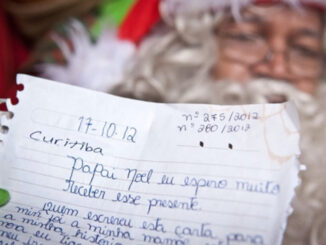 17-10.12
nº 275/2012
nº 260/2012
Curitiba
Papai Noel eu espero muito
receber esse presente.
quem escreveu esta carta, para
mim foi a minha mamãe
a minha história